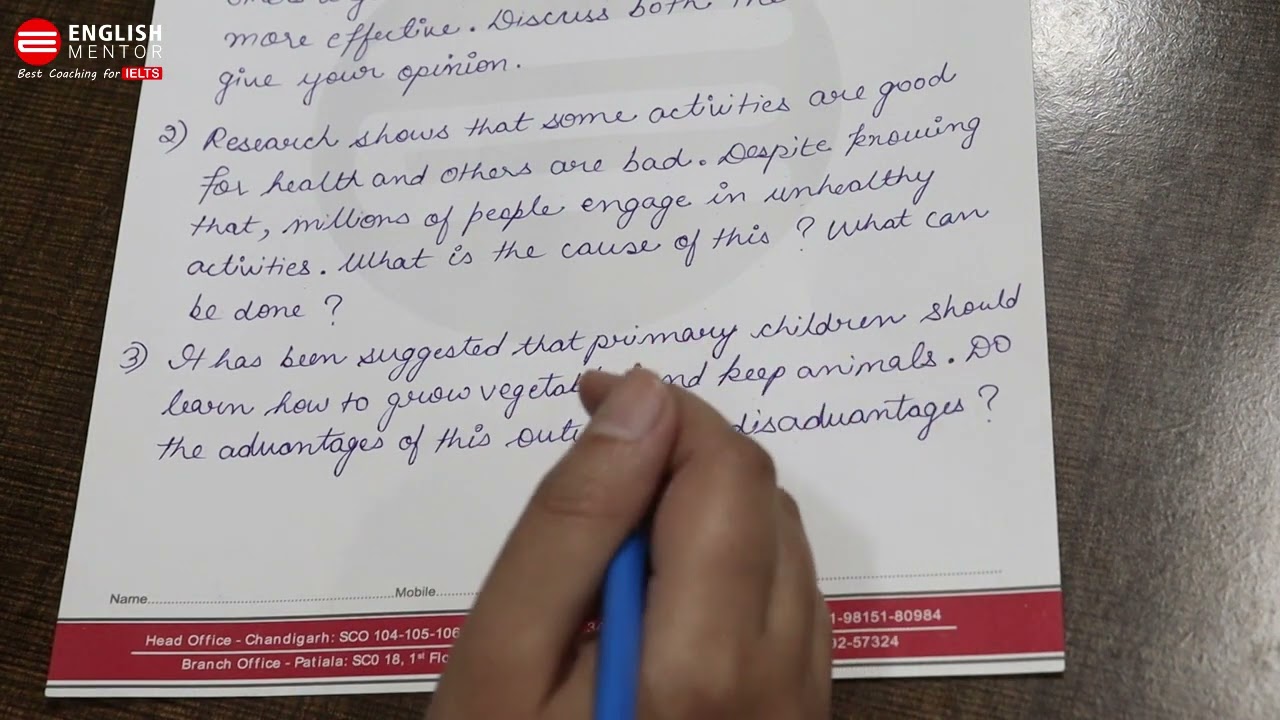 ENGLISH
MENTOR
Best Coaching for IELTS
more effective. Discuss both
give your opinion.
2) Research shows that some activities are good
for health and others are bad. Despite knowing
that, millions of people engage in unhealthy
activities. What is the cause of this ? What can
be done ?
3) It has been suggested that primary children should
learn how to grow and keep animals. Do
the advantages of this disadvantages ?
Name Mobile
Head Office - Chandigarh: SCO 104-105-106 1-98151-80984
Branch Office - Patiala: SCO 18, 1st 02-57324